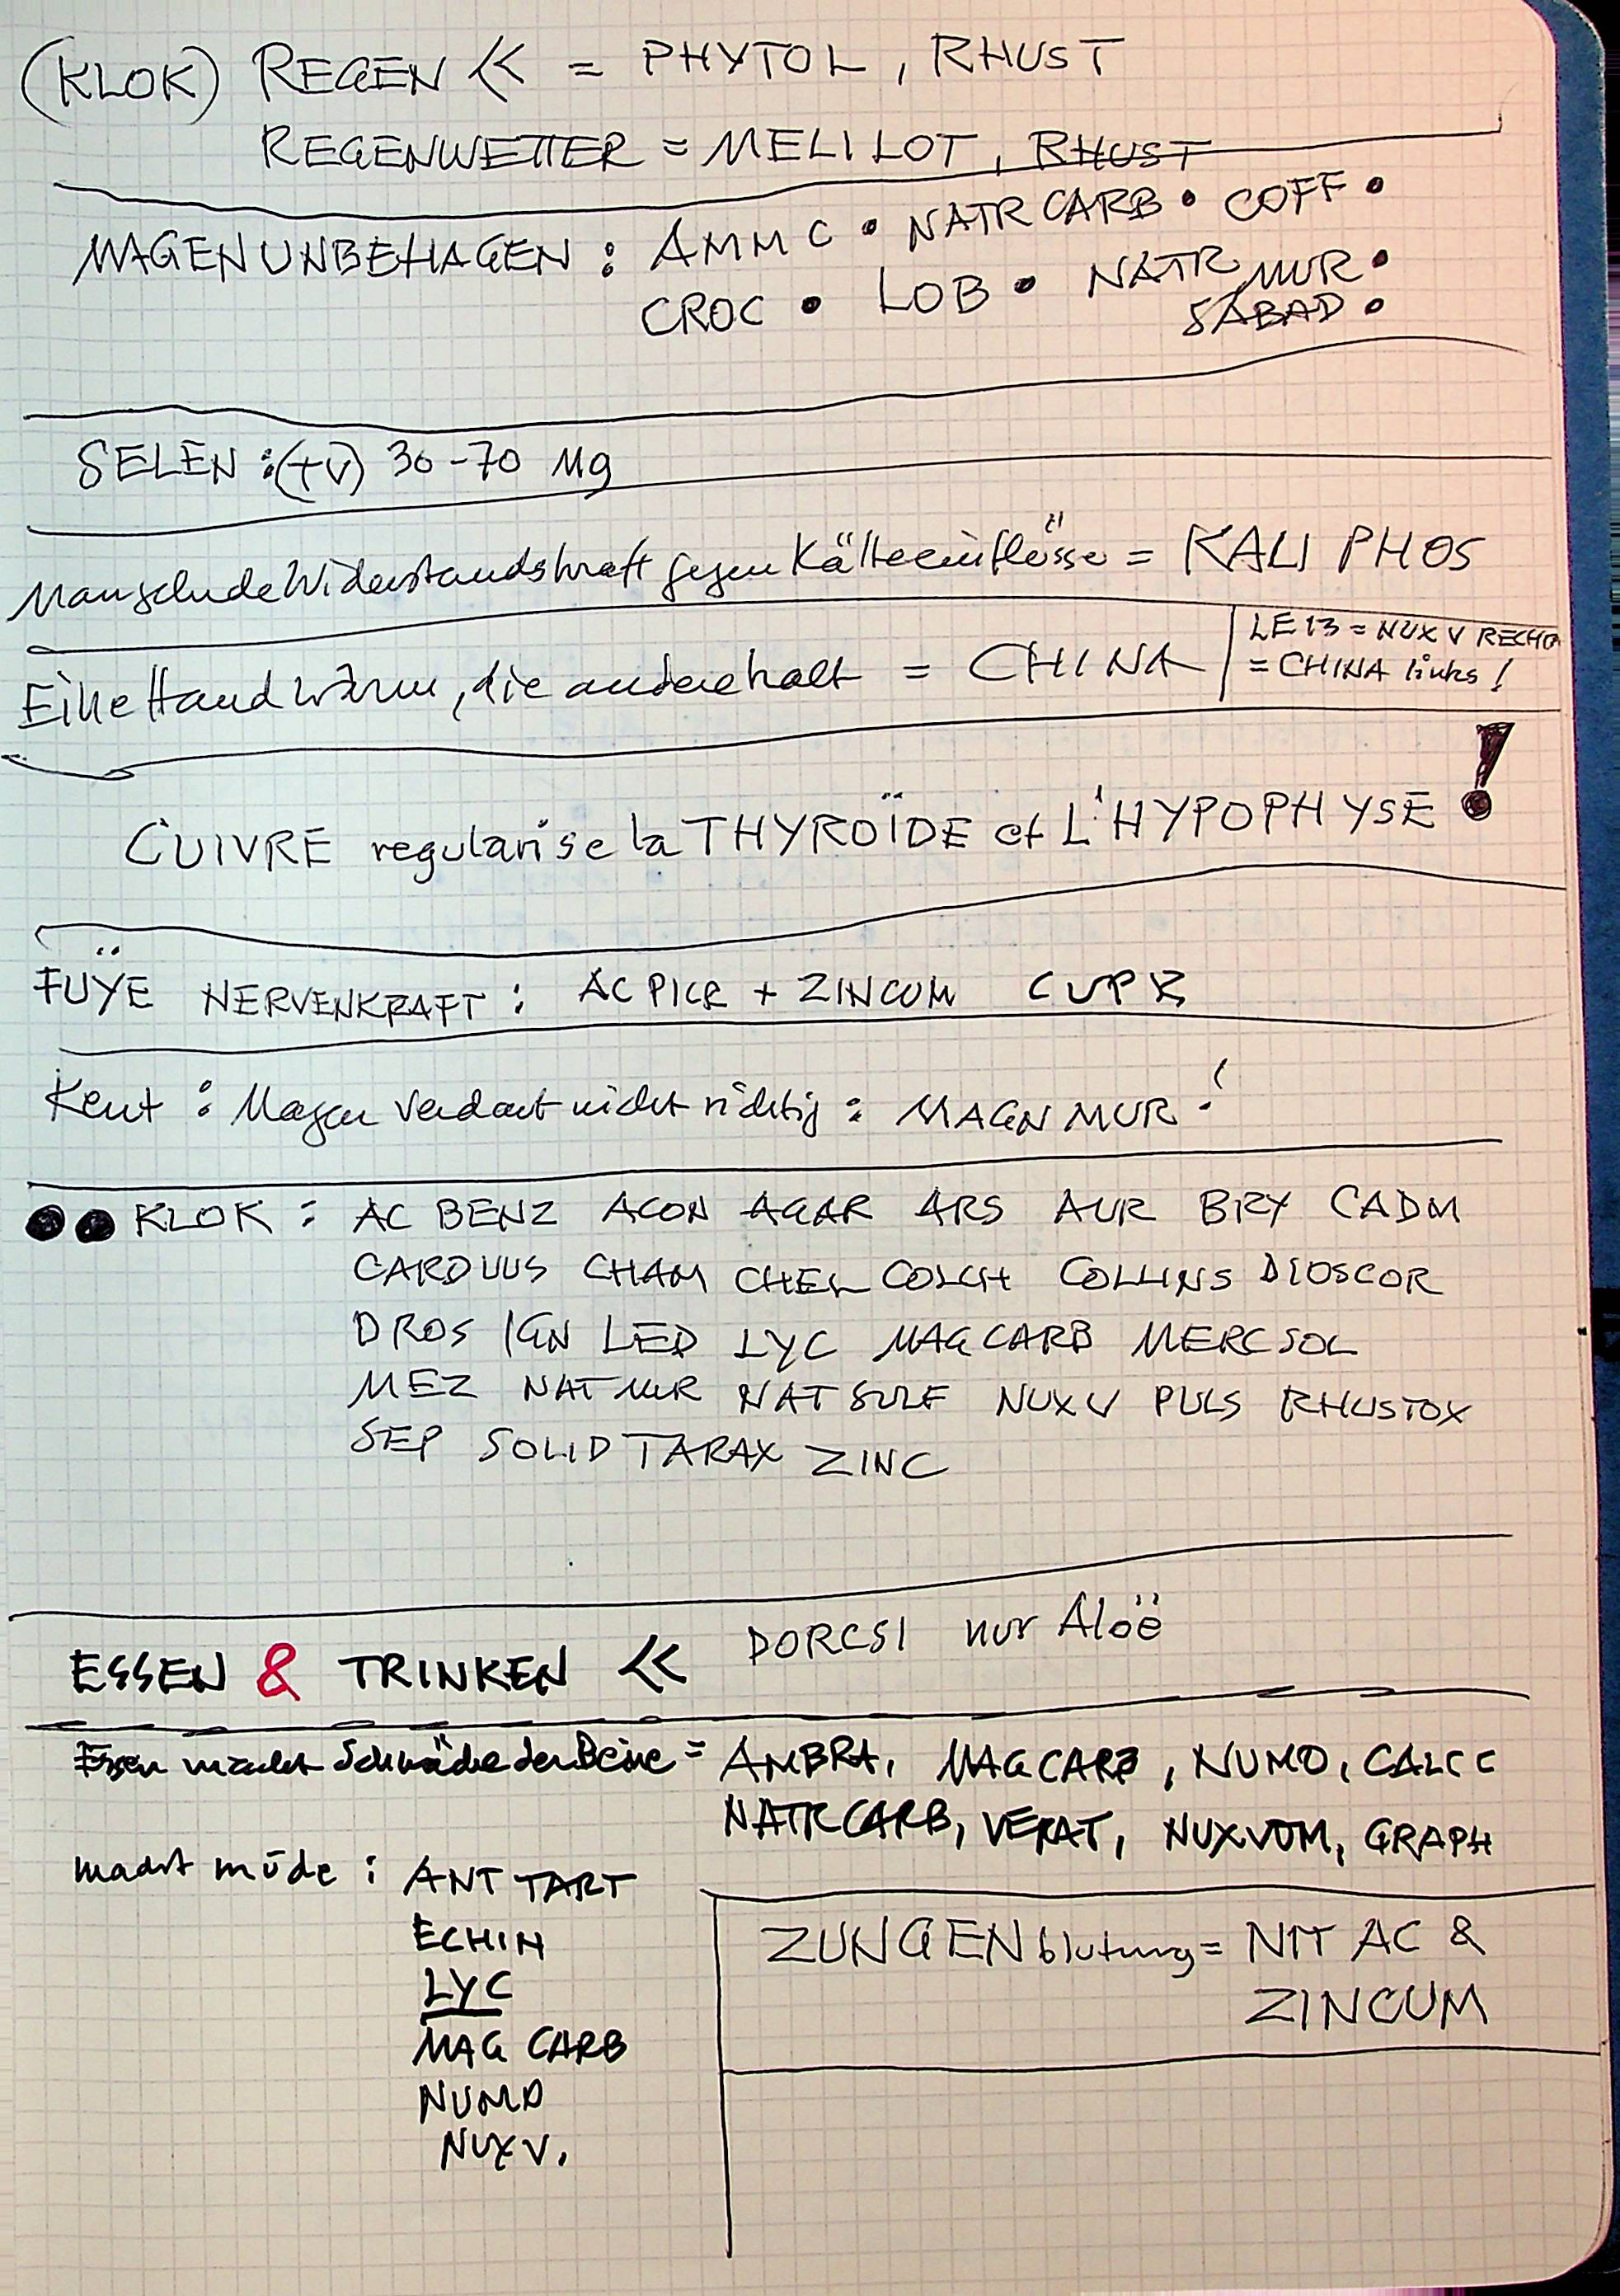 (KLOK) REGEN << = PHYTOL, RHUST
REGENWETTER = MELILOT, RHUST
MAGENUNBEHAGEN : AMM C • NATR CARB • COFF •
CROC • LOB • NATR MUR •
SABAD •
SELEN : (TV) 30-70 Mg
Mangelnde Widerstandskraft gegen Kälteeinflüsse = KALI PHOS
Eine Hand warm, die andere kalt = CHINA
LE 13 = NUX V RECHTS
= CHINA links !
CUIVRE regularise la THYROÏDE et L'HYPOPHYSE !
FUŸE NERVENKRAFT : AC PICR + ZINCUM CUPR
Kent : Magen verdaut nicht richtig : MAGN MUR !
●● KLOK : AC BENZ ACON AGAR ARS AUR BRY CADM
CARDUUS CHAM CHEL COLCH COLLINS DIOSCOR
DROS IGN LED LYC MAG CARB MERC SOL
MEZ NAT MUR NAT SULF NUX V PULS RHUSTOX
SEP SOLID TARAX ZINC
ESSEN & TRINKEN << DORCSI nur Aloë
Essen macht Schwäche der Beine = AMBRA, MAG CARB, NUMO, CALC C
NATR CARB, VERAT, NUX VOM, GRAPH
macht müde : ANT TART
ECHIN
LYC
MAG CARB
NUMO
NUX V.
ZUNGENblutung = NIT AC &
ZINCUM